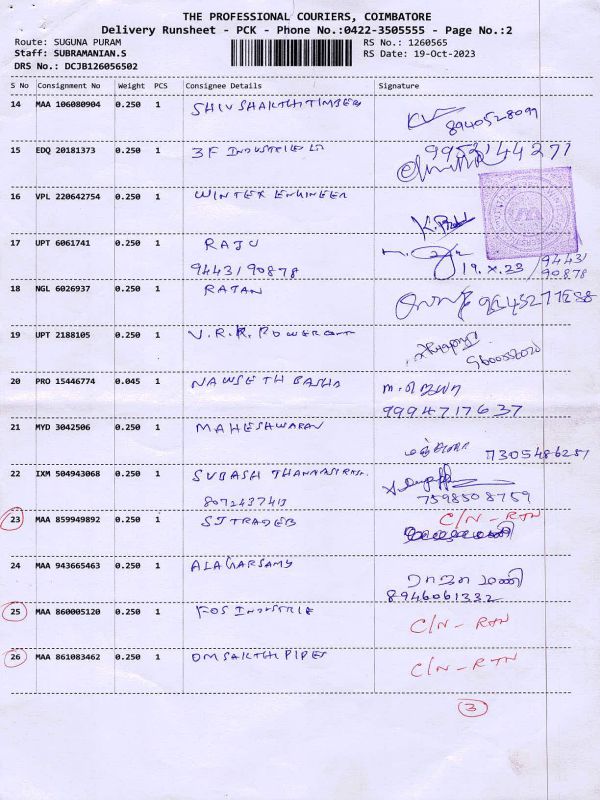 THE PROFESSIONAL COURIERS, COIMBATORE
Delivery Runsheet - PCK - Phone No.:0422-3505555 - Page No.:2
Route: SUGUNA PURAM RS No.: 1260565
Staff: SUBRAMANIAN.S RS Date: 19-Oct-2023
DRS No.: DCJB126056502
S No Consignment No Weight PCS Consignee Details Signature
14 MAA 106080904 0.250 1 SHIVSHAKTHITIMBER
8940528099
15 EDQ 20181373 0.250 1 3F INDUSTRIES 9952144271
16 VPL 220642754 0.250 1 WINTEX ENGINEER
17 UPT 6061741 0.250 1 RAJU
9443190878 19.X.23 / 94431
90878
18 NGL 6026937 0.250 1 RAJAN
19 UPT 2188105 0.250 1 V.R.R. POWER
20 PRO 15446774 0.045 1 NAWSETH BASHA
9994717637
21 MYD 3042506 0.250 1 MAHESHWARAN
7305486251
22 IXM 504943068 0.250 1 SUBASH
8072437413 7598508759
23 MAA 859949892 0.250 1 SJ TRADERS C/N - RTN
24 MAA 943665463 0.250 1 ALAGARSAMY
8946061332
25 MAA 860005120 0.250 1 FOS INDUSTRIE C/N - RTN
26 MAA 861083462 0.250 1 OMSAKTHI PIPES C/N - RTN
3